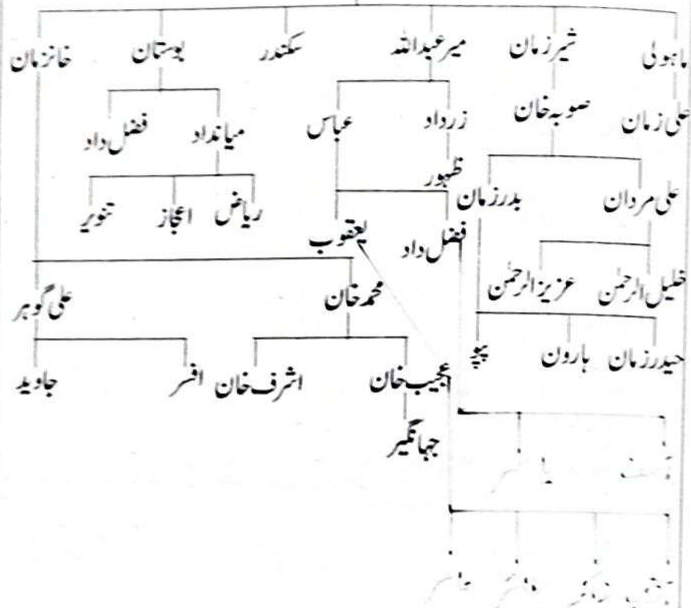 ماہولی شیرزمان میرعبداللہ سکندر بوستان خانزمان
علی زمان صوبہ خان زرداد عباس میانداد فضل داد
علی مردان بدرزمان ظہور ریاض اعجاز تنویر
فضل داد یعقوب
خلیل الرحمٰن عزیز الرحمٰن محمد خان علی گوہر
حیدر زمان ہارون پپو عجیب خان اشرف خان افسر جاوید
جہانگیر